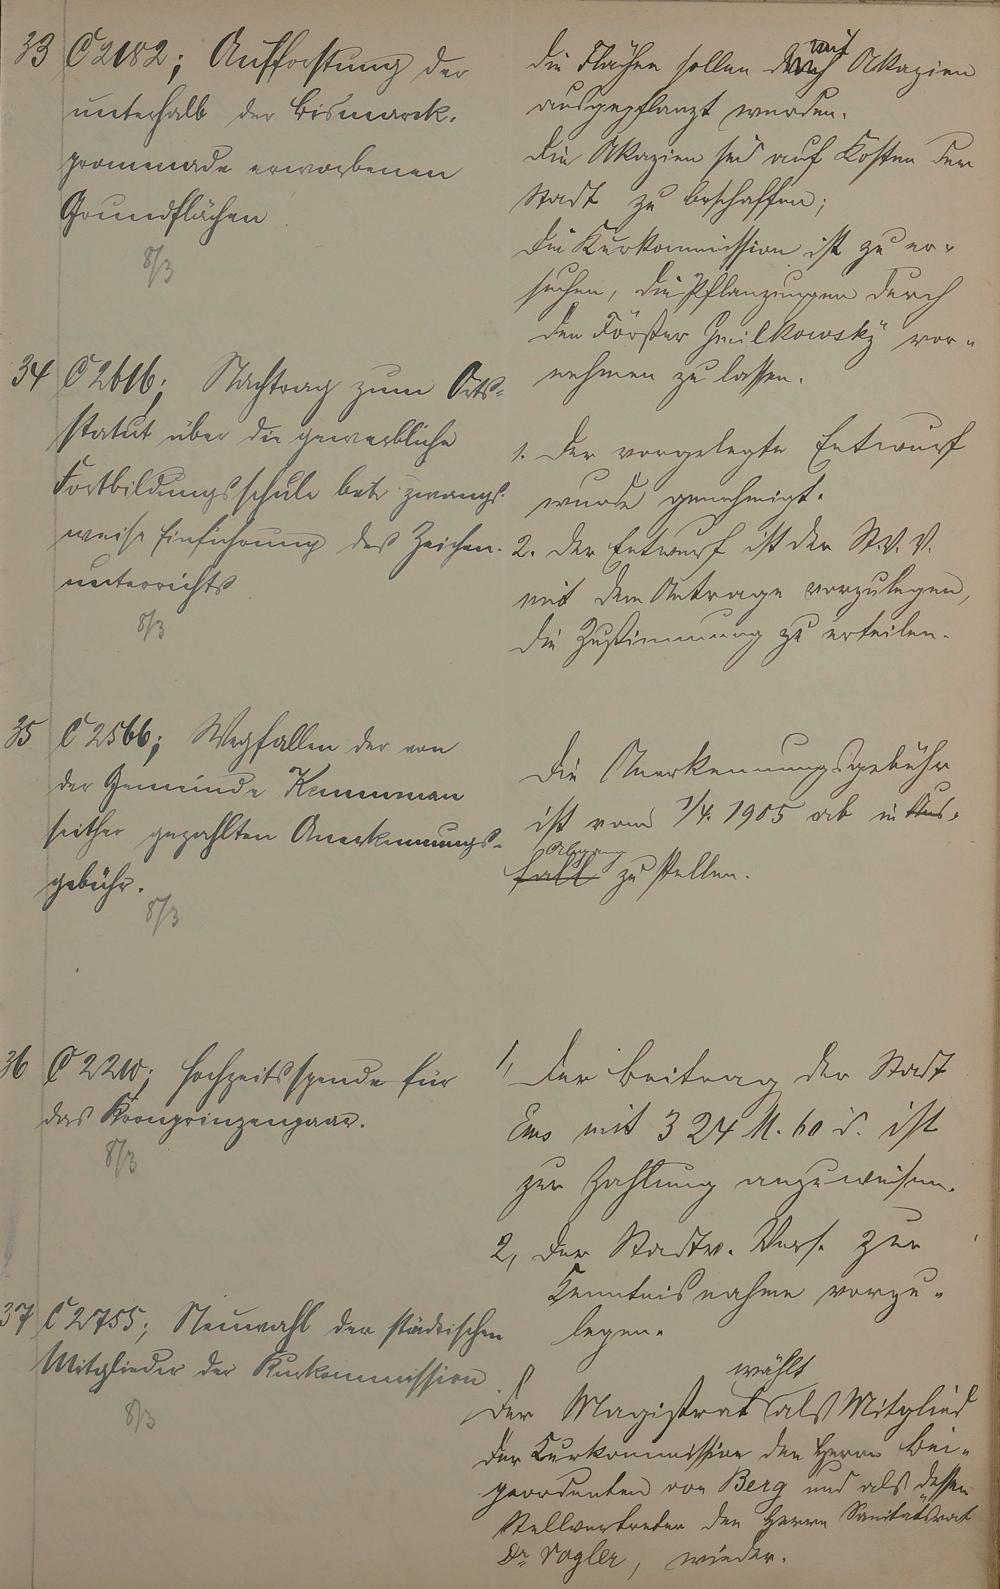 33 C 2182; Aufforstung der
unterhalb der Bismarck-
promenade erworbenen
Grundflächen
8/3
Die Flächen sollen mit Akazien
ausgepflanzt werden.
Die Akazien sind auf Kosten der
Stadt zu beschaffen;
Die Kurkommission ist zu er-
suchen, die Pflanzungen durch
den Förster Gmilkowsky vor-
nehmen zu lassen.
34 C 2616; Nachtrag zum Orts-
statut über die gewerbliche
Fortbildungsschule betr. zwangs-
weise Einführung des Zeichen-
unterrichts
8/3
1. Der vorgelegte Entwurf
wurde genehmigt.
2. Der Entwurf ist der St. V. V.
mit dem Antrage vorzulegen,
die Zustimmung zu erteilen.
35 C 2566; Wegfallen der von
der Gemeinde Kemmenau
seither gezahlten Anerkennungs-
gebühr.
8/3
Die Anerkennungsgebühr
ist vom 1/4. 1905 ab in Aus-
Abgang
fall zu stellen.
36 C 2210; Hochzeitsspende für
das Kronprinzenpaar.
8/3
1, Der Beitrag der Stadt
Ems mit 324 M. 60 d. ist
zur Zahlung anzuweisen.
2, Der Stadtv. Vers. zur
Kenntnisnahme vorzu-
legen.
37 C 2755; Neuwahl der städtischen
Mitglieder der Kurkommission
8/3
wählt
Der Magistrat als Mitglied
der Kurkommission den Herrn Bei-
geordneten von Berg und als dessen
Stellvertreter den Herrn Sanitätsrat
Dr Vogler, wieder.